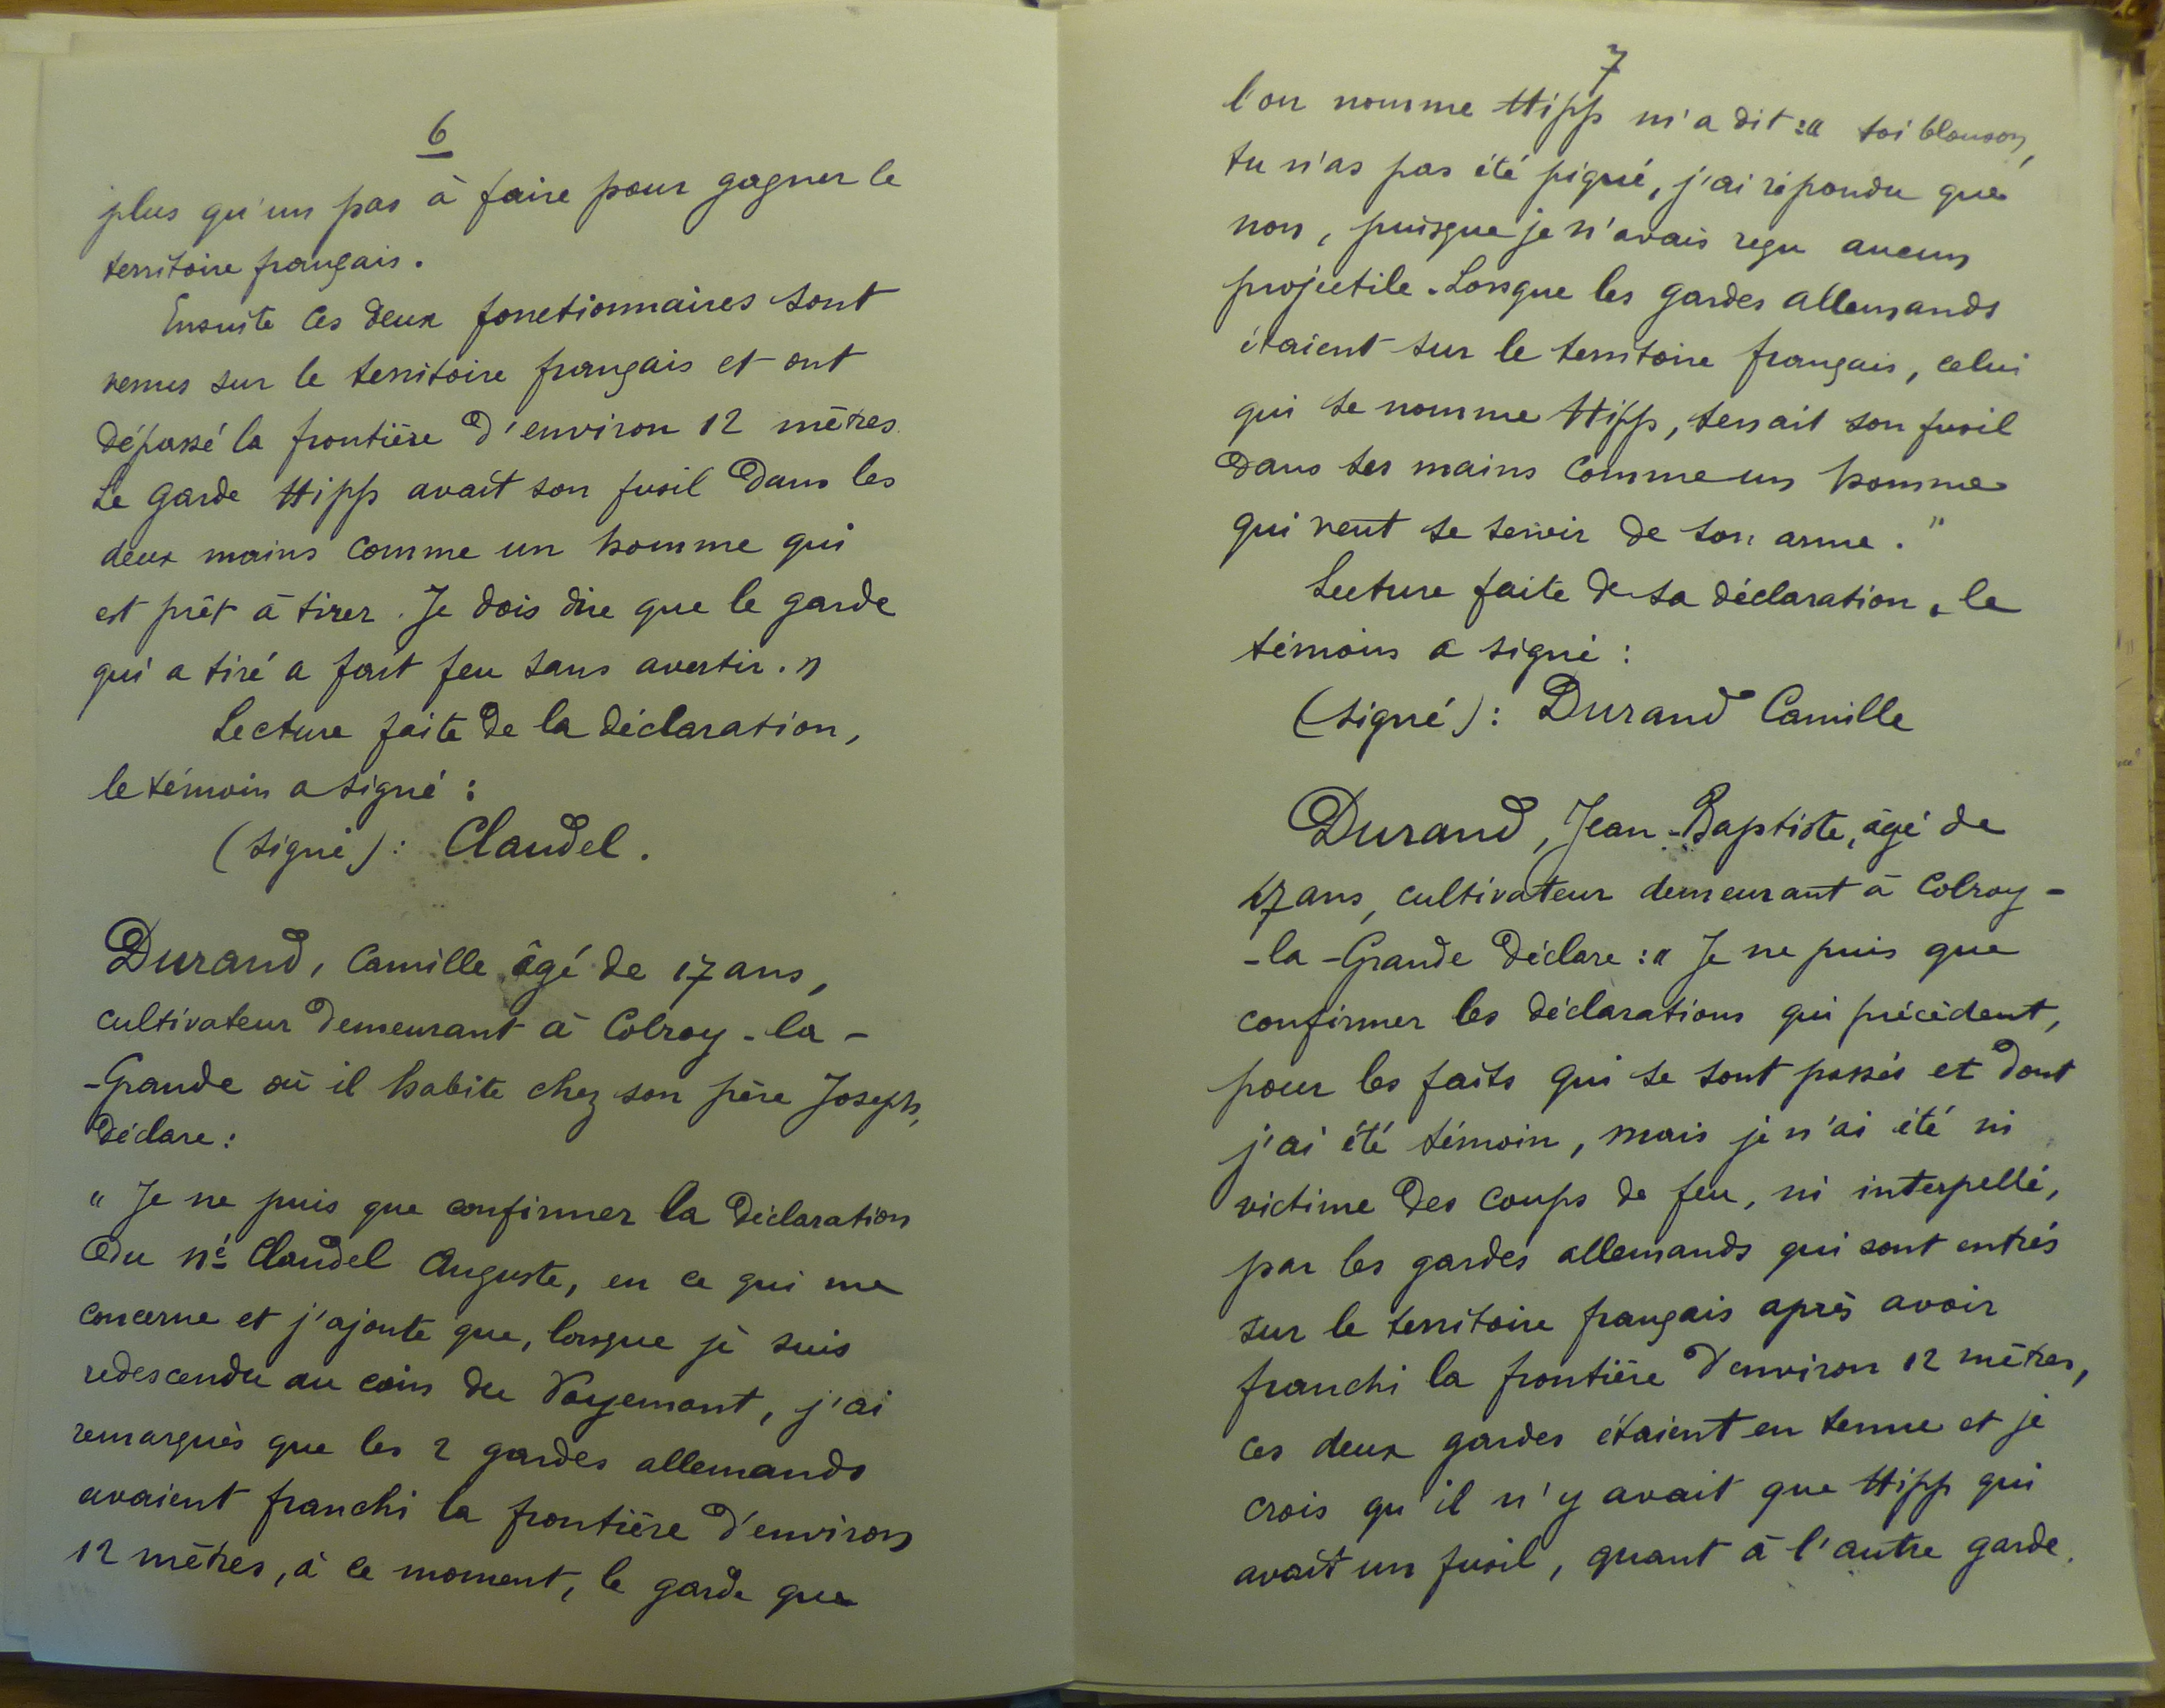 6
plus qu'un pas à faire pour gagner le
territoire français.
Ensuite ces deux fonctionnaires sont
venus sur le territoire français et ont
dépassé la frontière d'environ 12 mètres.
Le garde Hipp avait son fusil dans les
deux mains comme un homme qui
est prêt à tirer. Je dois dire que le garde
qui a tiré a fait feu sans avertir. "
Lecture faite de la déclaration,
le témoin a signé :
(signé) : Claudel.
Durand, Camille âgé de 17 ans,
cultivateur demeurant à Colroy-la-
-Grande où il habite chez son père Joseph,
déclare :
" Je ne puis que confirmer la déclaration
du né Claudel Auguste, en ce qui me
concerne et j'ajoute que, lorsque je suis
redescendu au coin du Voyemont, j'ai
remarqués que les 2 gardes allemands
avaient franchi la frontière d'environ
12 mètres, à ce moment, le garde que
7
l'on nomme Hipp m'a dit : " toi blouson,
tu n'as pas été piqué, j'ai répondu que
non, puisque je n'avais reçu aucun
projectile. Lorsque les gardes allemands
étaient sur le territoire français, celui
qui se nomme Hipp, tenait son fusil
dans ses mains comme un homme
qui veut se servir de son arme. "
Lecture faite de sa déclaration, le
témoin a signé :
(signé) : Durand Camille
Durand, Jean-Baptiste, âgé de
17 ans, cultivateur demeurant à Colroy-
-la-Grande déclare : " Je ne puis que
confirmer les déclarations qui précèdent,
pour les faits qui se sont passés et dont
j'ai été témoin, mais je n'ai été ni
victime des coups de feu, ni interpellé,
par les gardes allemands qui sont entrés
sur le territoire français après avoir
franchi la frontière d'environ 12 mètres,
ces deux gardes étaient en tenue et je
crois qu'il n'y avait que Hipp qui
avait un fusil, quant à l'autre garde.